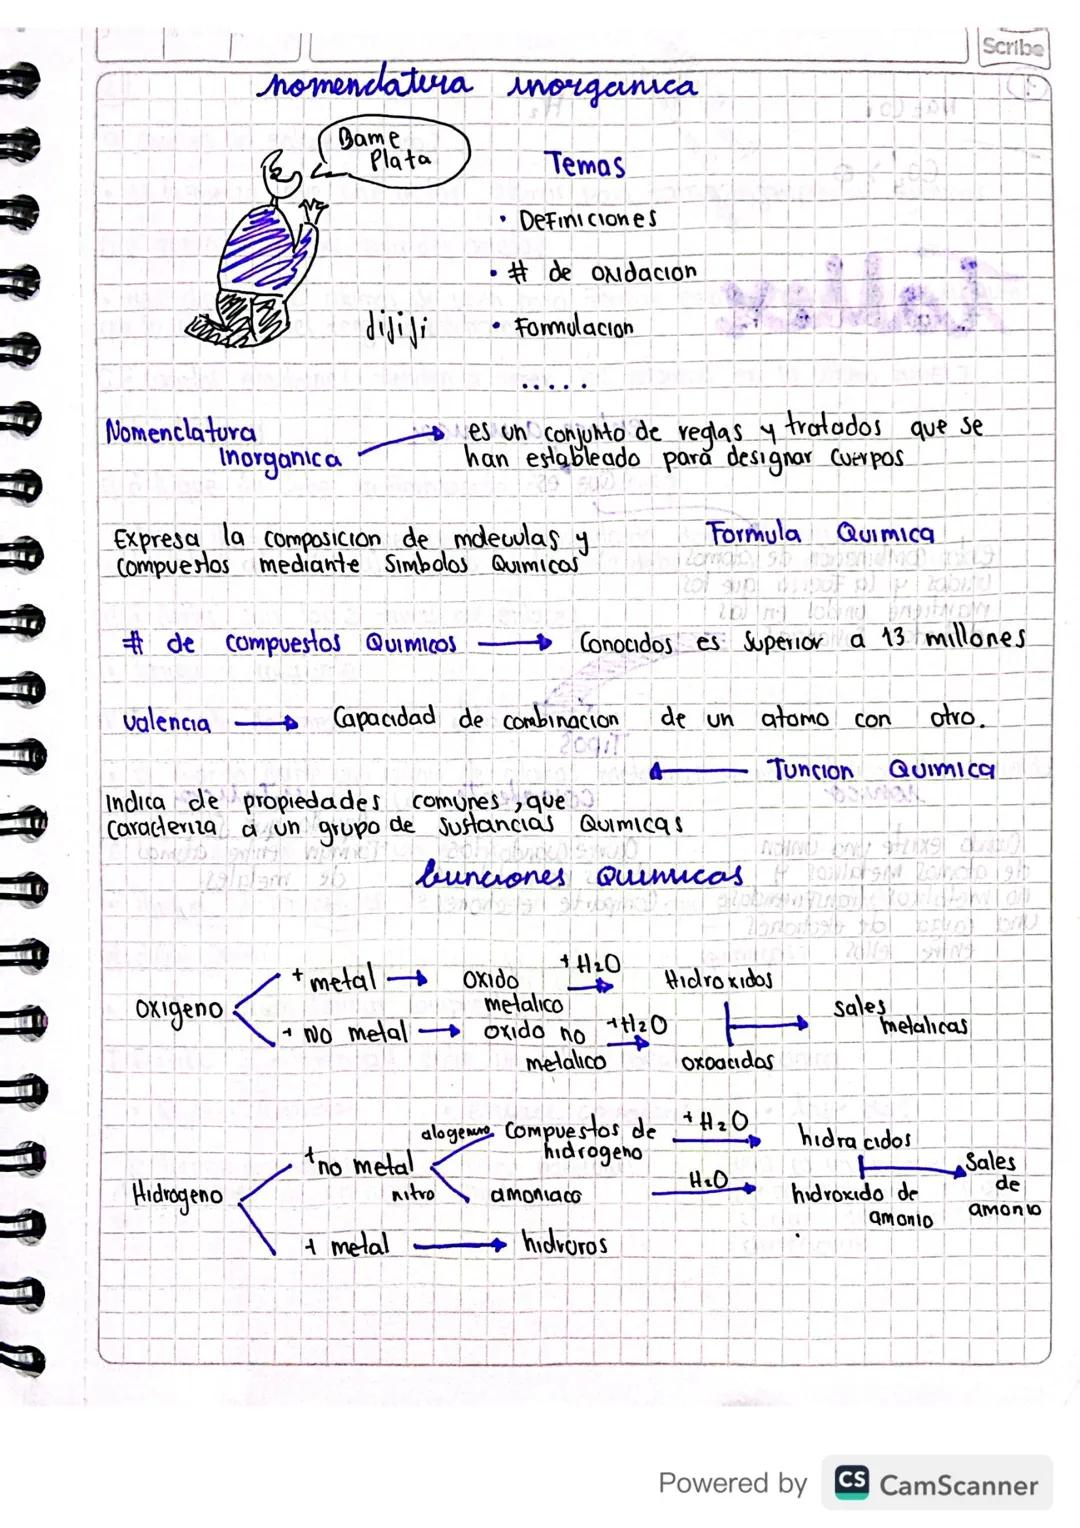 Scribe
nomenclatura inorganica
Dame
Plata
Temas
• Definiciones
• # de oxidacion
jijiji
• Formulacion
.....
Nomenclatura
Inorganica
es un conjunto de reglas y tratados que se
han estableado para designar cuerpos
Expresa la composicion de moleculas y
compuestos mediante Simbolos Quimicos
Formula Quimica
# de compuestos Quimicos
Conocidos es Superior a 13 millones
valencia
Capacidad de combinacion de un atomo con otro.
Funcion Quimica
Indica de propiedades comunes, que
Caracteriza a un grupo de Sustancias Quimicas
funciones Quimicas
oxigeno
+ metal
oxido
metalico
+ H2O
Hidroxidos
+ No metal
oxido no
metalico
+H2O
oxoacidos
Sales
metalicas
Hidrogeno
+no metal
alogenuro
Compuestos de
hidrogeno
+ H2O
hidracidos
nitro
amoniaco
H2O
hidroxido de
amonio
Sales
de
amonio
+ metal
hidruros
Powered by CS CamScanner